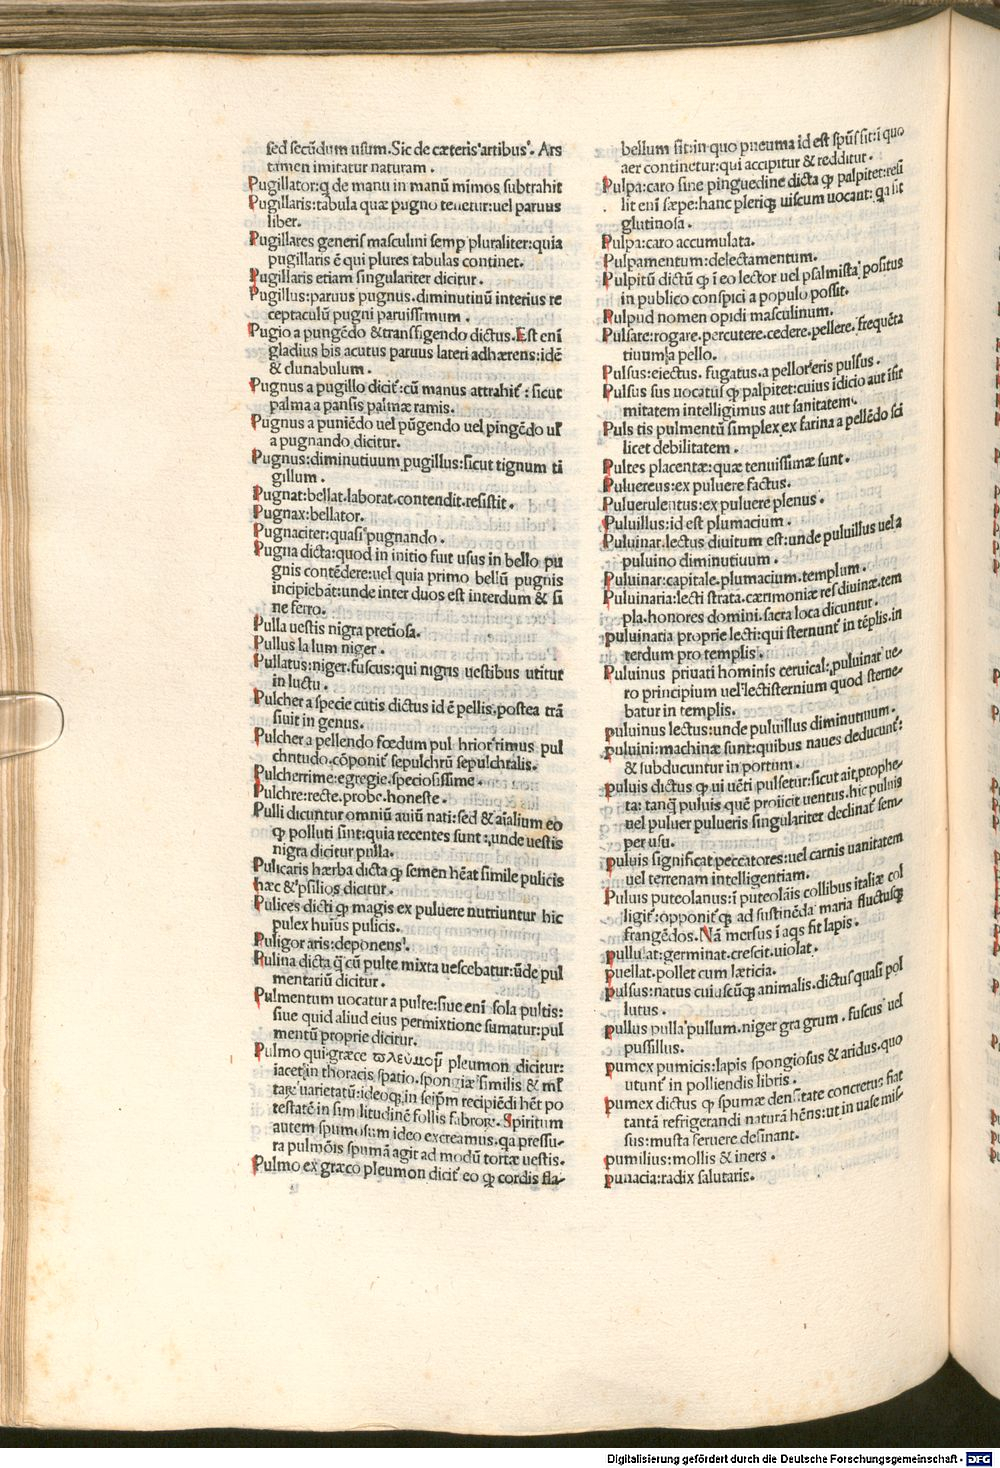 sed secūdum usum.Sic de cæteris artibus. Ars
tamen imitatur naturam.
Pugillator:q̨ de manu in manū mimos subtrahit
Pugillaris:tabula quæ pugno tenetur:uel paruus
liber.
Pugillares generis masculini semp pluraliter:quia
pugillaris ē qui plures tabulas continet.
Pugillaris etiam singulariter dicitur.
Pugillus:paruus pugnus.diminutiuū interius re
ceptaculū pugni paruissimum.
Pugio a pungēdo & transfigendo dictus.Est enī
gladius bis acutus paruus lateri adhærens:idē
& clunabulum.
Pugnus a pugillo dicit᷑:cū manus attrahit᷑:sicut
palma a pansis palmæ ramis.
Pugnus a puniēdo uel pūgendo uel pingēdo uł
a pugnando dicitur.
Pugnus:diminutiuum pugillus:sicut tignum ti
gillum.
Pugnat:bellat.laborat.contendit.resistit.
Pugnax:bellator.
Pugnaciter:quasi pugnando.
Pugna dicta:quod in initio fuit usus in bello pu
gnis contēdere:uel quia primo bellū pugnis
incipiebat:unde inter duos est interdum & si
ne ferro.
Pulla uestis nigra pretiosa.
Pullus la lum niger.
Pullatus:niger.fuscus:qui nigris uestibus utitur
in luctu.
Pulcher a specie cutis dictus id ē pellis.postea trā
siuit in genus.
Pulcher a pellendo fœdum pul hrior rimus pul
chritudo.cōponit᷑ sepulchrū sepulchralis.
Pulcherrime:egregie.speciosissime.
Pulchre:recte.probe.honeste.
Pulli dicuntur omniū auiū nati:sed & aīalium eo
ꝙ polluti sint:quia recentes sunt:unde uestis
nigra dicitur pulla.
Pulicaris hærba dicta ꝙ semen hēat simile pulicis
hæc & psilios dicitur.
Pulices dicti ꝙ magis ex puluere nutriuntur hic
pulex huius pulicis.
Puligor aris:deponens.
Pulina dicta q̄ cū pulte mixta uescebatur:ūde pul
mentariū dicitur.
Pulmentum uocatur a pulte:siue enī sola pultis:
siue quid aliud eius permixtione sumatur:pul
mentū proprie dicitur.
Pulmo qui græce pleumon dicitur:
iacet in thoracis spatio.spongiæ similis & mł
tare uarietatū:ideoq; in seipm recipiēdi hēt po
testatē in similitudinē follis fabrorꝝ. Spiritum
autem spumosum ideo excreamus.qa pressu-
ra pulmōis spumā agit ad modū tortæ uestis.
Pulmo ex græco pleumon dicit᷑ eo ꝙ cordis fla-
bellum sit:in quo pneuma id est spūs sit:ī quo
aer continetur:qui accipitur & redditur.
Pulpa:caro sine pinguedine dicta ꝙ palpitet:resi
lit enī sæpe:hanc pleriq; uiscum uocant:qa sit
glutinosa.
Pulpa:caro accumulata.
Pulpamentum:delectamentum.
Pulpitū dictū ꝙ ī eo lector uel psalmista positus
in publico conspici a populo possit.
Pulpud nomen opidi masculinum.
Pulsare:rogare.percutere.cedere.pellere.frequēta
tiuum a pello.
Pulsus:eiectus.fugatus.a pellor eris pulsus.
Pulsus sus uocatus ꝙ palpitet:cuius īdicio aut īfir
mitatem intelligimus aut sanitatem.
Puls tis pulmentū simplex ex farina a pellēdo sci
licet debilitatem.
Pultes placentæ:quæ tenuissimæ sunt.
Puluereus:ex puluere factus.
Puluerulentus:ex puluere plenus.
Puluillus:id est plumacium.
Puluinar.lectus diuitum est:unde puluillus uel a
puluino diminutiuum.
Puluinar:capitale.plumacium.templum.
Puluinaria:lecti strata.cærimoniæ res diuinæ.tem
pla.honores domini.sacra loca dicuntur.
puluinaria proprie lecti:qui sternunt᷑ in tēplis.in
terdum pro templis.
Puluinus priuati hominis ceruical:puluinar ue-
ro principium uel lectisternium quod sterne-
batur in templis.
puluinus lectus:unde puluillus diminutiuum.
puluini:machinæ sunt:quibus naues deducunt᷑:
& subducuntur in portum.
puluis dictus ꝙ ui uēti pulsetur:sicut ait prophe-
ta: tanq̄ puluis quē proiicit uentus.hic puluis
uel puluer pulueris singulariter declinat᷑ sem-
per usu.
puluis significat peccatores:uel carnis uanitatem
uel terrenam intelligentiam.
Puluis puteolanus:ī puteolāis collibus italiæ col
ligit᷑:opponit᷑q; ad sustinēda maria fluctusq;
frangēdos.Nā mersus ī aqs fit lapis.
pullulat:germinat.crescit.uiolat.
puellat.pollet cum læticia.
pulsus:natus cuiuscūq; animalis.dictus quasi pol
lutus.
pullus pulla pullum.niger gra grum.fuscus uel
pusillus.
pumex pumicis:lapis spongiosus & aridus.quo
utunt᷑ in polliendis libris.
pumex dictus ꝙ spumæ densitate concretus fiat
tantā refrigerandi naturā hēns:ut in uase mis-
sus:musta feruere desinant.
pumilius:mollis & iners.
punacia:radix salutaris.
Digitalisierung gefördert durch die Deutsche Forschungsgemeinschaft - DFG